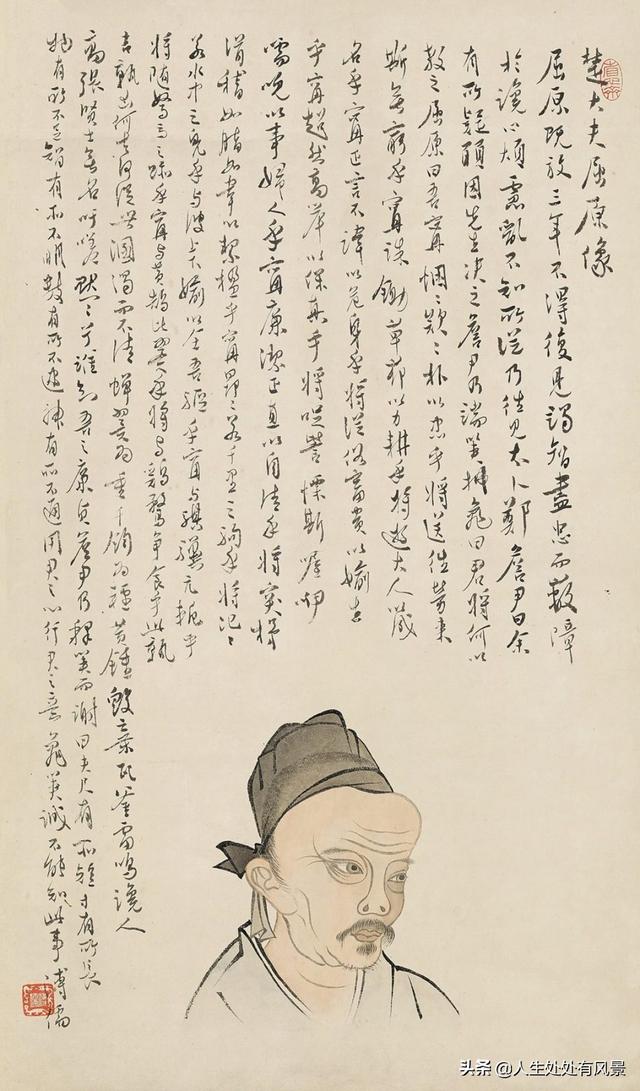 楚大夫屈原像
屈原既放三年不得復見竭智盡忠而蔽障
於讒心煩慮亂不知所從乃往見太卜鄭詹尹曰余
有所疑願因先生決之詹尹乃端筴拂龜曰君將何以
教之屈原曰吾寧悃悃款款朴以忠乎將送往勞來
斯無窮乎寧誅鋤草茆以力耕乎將遊大人以成
名乎寧正言不諱以危身乎將從俗富貴以媮生
乎寧超然高舉以保真乎將哫訾慄斯喔咿
嚅唲以事婦人乎寧廉潔正直以自清乎將突梯
滑稽如脂如韋以絜楹乎寧昂昂若千里之駒乎將氾氾
若水中之鳧乎與波上下媮以全吾軀乎寧與騏驥亢軛乎
將隨駑馬之跡乎寧與黃鵠比翼乎將與雞鶩爭食乎此孰
吉孰凶何去何從世溷濁而不清蟬翼為重千鈞為輕黃鐘毀棄瓦釜雷鳴讒人
高張賢士無名吁嗟默默兮誰知吾之廉貞詹尹乃釋筴而謝曰夫尺有所短寸有所長
物有所不足智有所不明數有所不逮神有所不通用君之心行君之意龜筴誠不能知此事 溥儒
头条 @人生处处有风景